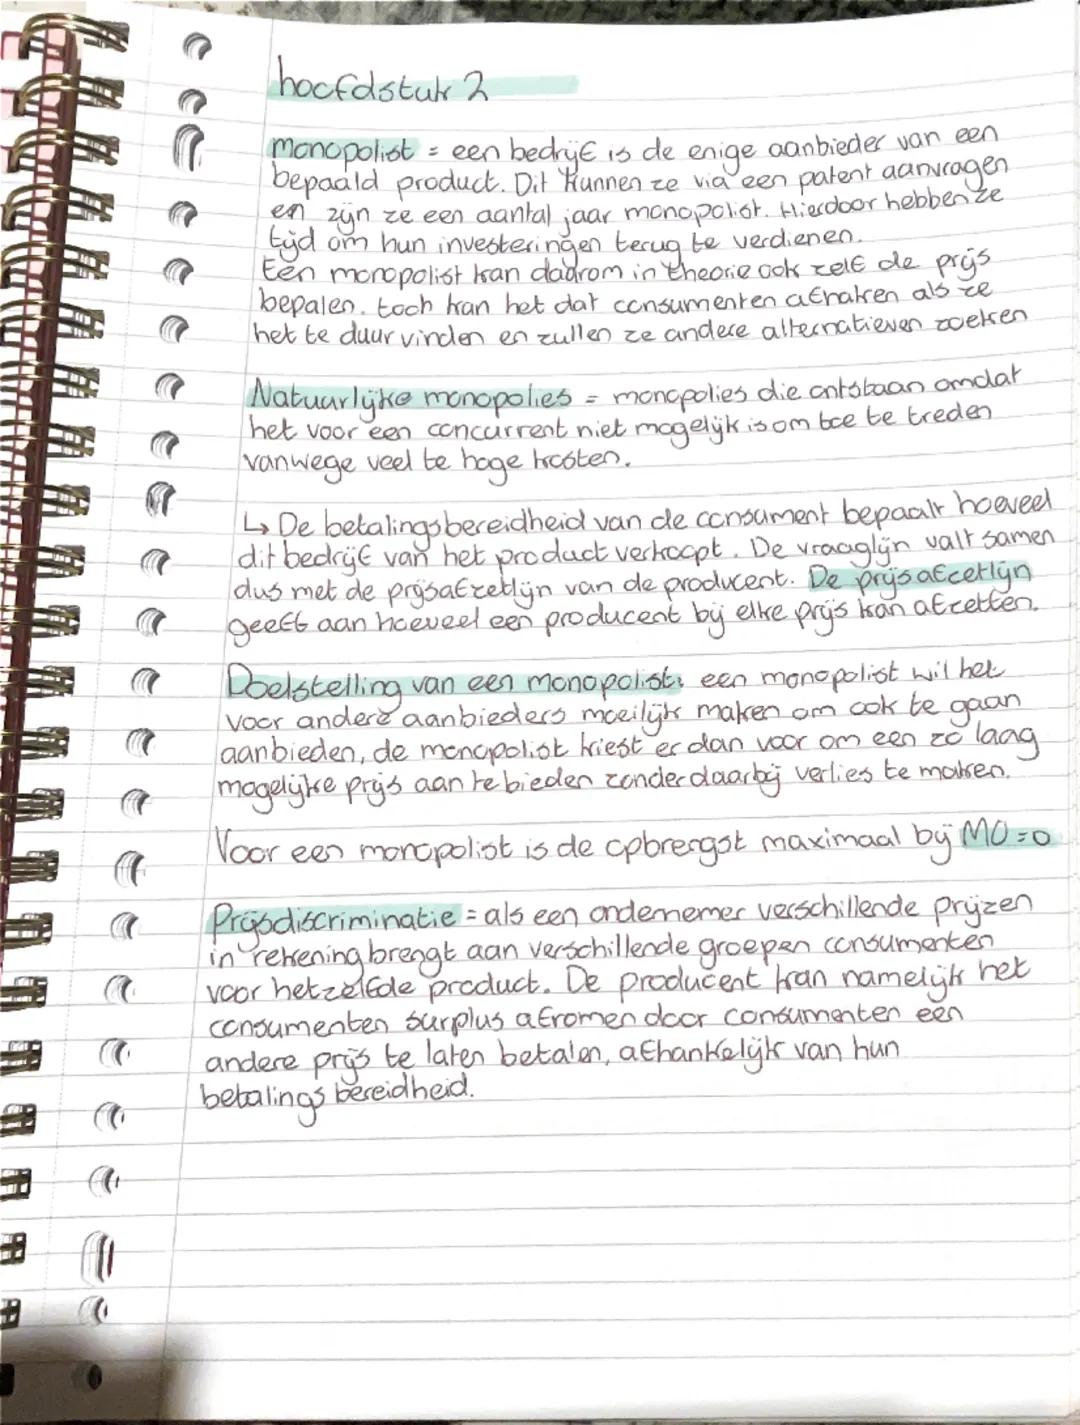 hoofdstuk 2
monopolist = een bedrijf is de enige aanbieder van een
bepaald product. Dit kunnen ze via een patent aanvragen
en zijn ze een aantal jaar monopolist. Hierdoor hebben ze
tijd om hun investeringen terug te verdienen.
Een monopolist kan daarom in theorie ook zelf de prijs
bepalen. toch kan het dat consumenten afhaken als ze
het te duur vinden en zullen ze andere alternatieven zoeken
Natuurlijke monopolies = monopolies die ontstaan omdat
het voor een concurrent niet mogelijk is om toe te treden
vanwege veel te hoge kosten.
↳ De betalingsbereidheid van de consument bepaalt hoeveel
dit bedrijf van het product verkoopt. De vraaglijn valt samen
dus met de prijsafzetlijn van de producent. De prijsafzetlijn
geeft aan hoeveel een producent bij elke prijs kan afzetten.
Doelstelling van een monopolist: een monopolist wil het
voor andere aanbieders moeilijk maken om ook te gaan
aanbieden, de monopolist kiest er dan voor om een zo laag
mogelijke prijs aan te bieden zonder daarbij verlies te maken.
Voor een monopolist is de opbrengst maximaal bij MO=0
Prijsdiscriminatie = als een ondernemer verschillende prijzen
in rekening brengt aan verschillende groepen consumenten
voor hetzelfde product. De producent kan namelijk het
consumenten surplus afromen door consumenten een
andere prijs te laten betalen, afhankelijk van hun
betalings bereidheid.